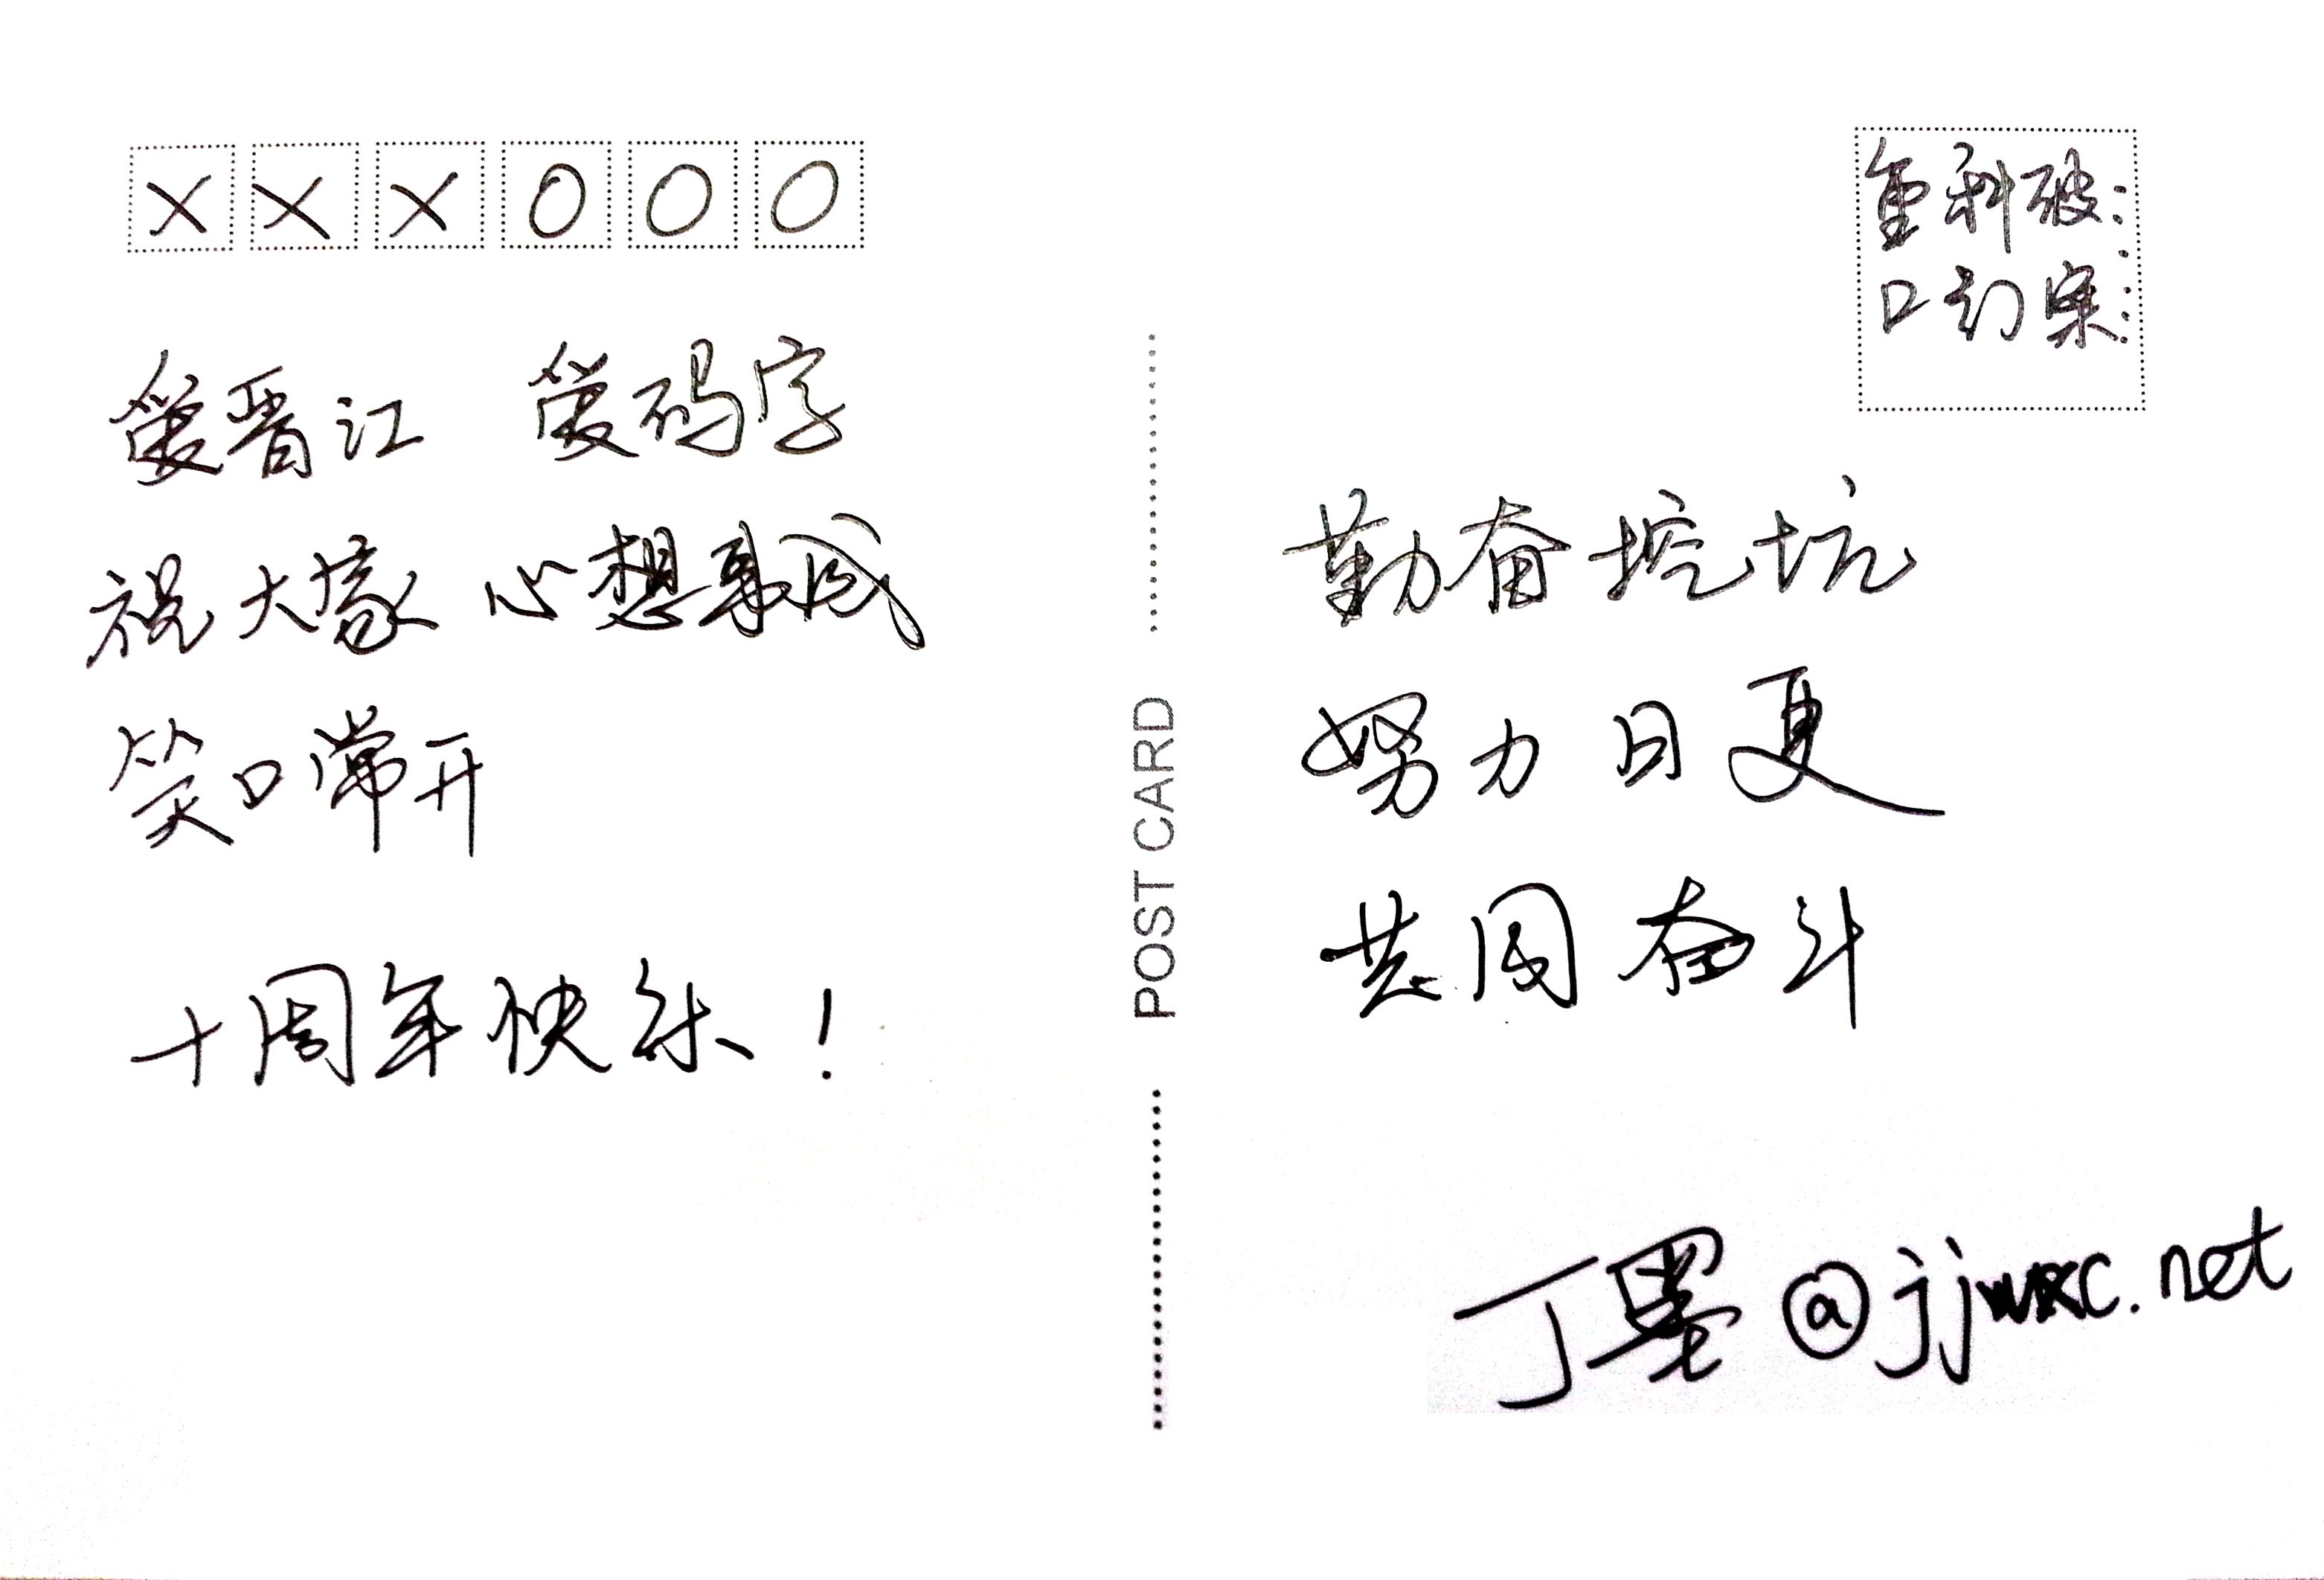 XXXOOO
爱晋江 爱码字
祝大家 心想事成
笑口常开
十周年快乐！
POST CARD
重口
科幻
破案……
勤奋挖坑
努力日更
共同奋斗
丁墨@jjwxc.net